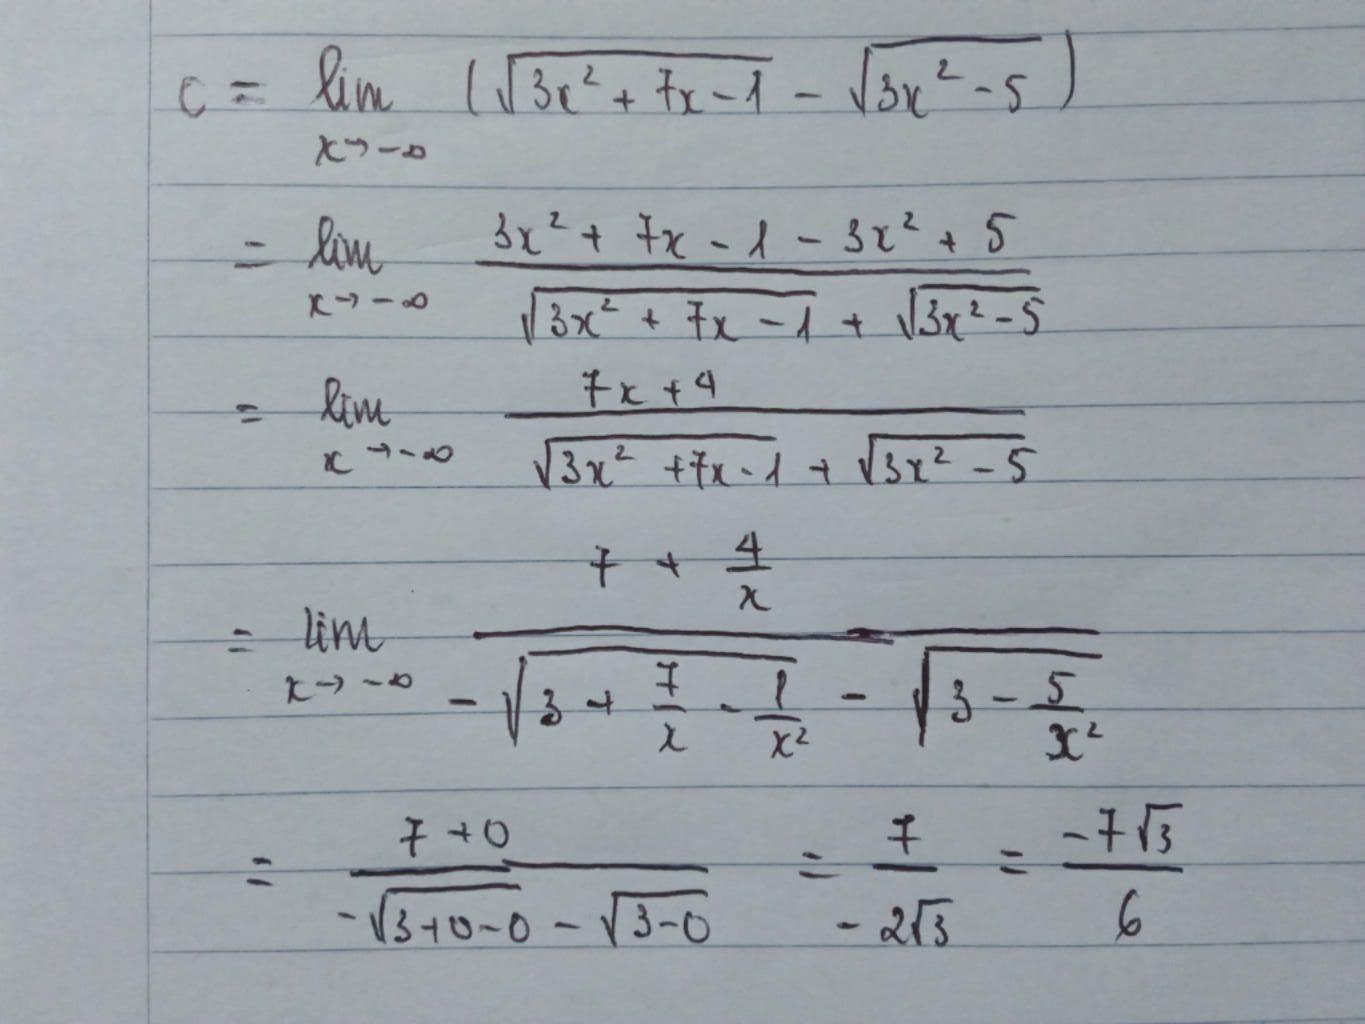 C = lim_{x→-∞} (√(3x² + 7x - 1) - √(3x² - 5))
= lim_{x→-∞} (3x² + 7x - 1 - 3x² + 5) / (√(3x² + 7x - 1) + √(3x² - 5))
= lim_{x→-∞} (7x + 4) / (√(3x² + 7x - 1) + √(3x² - 5))
= lim_{x→-∞} (7 + 4/x) / (-√(3 + 7/x - 1/x²) - √(3 - 5/x²))
= (7 + 0) / (-√(3+0-0) - √(3-0)) = 7 / (-2√3) = (-7√3) / 6